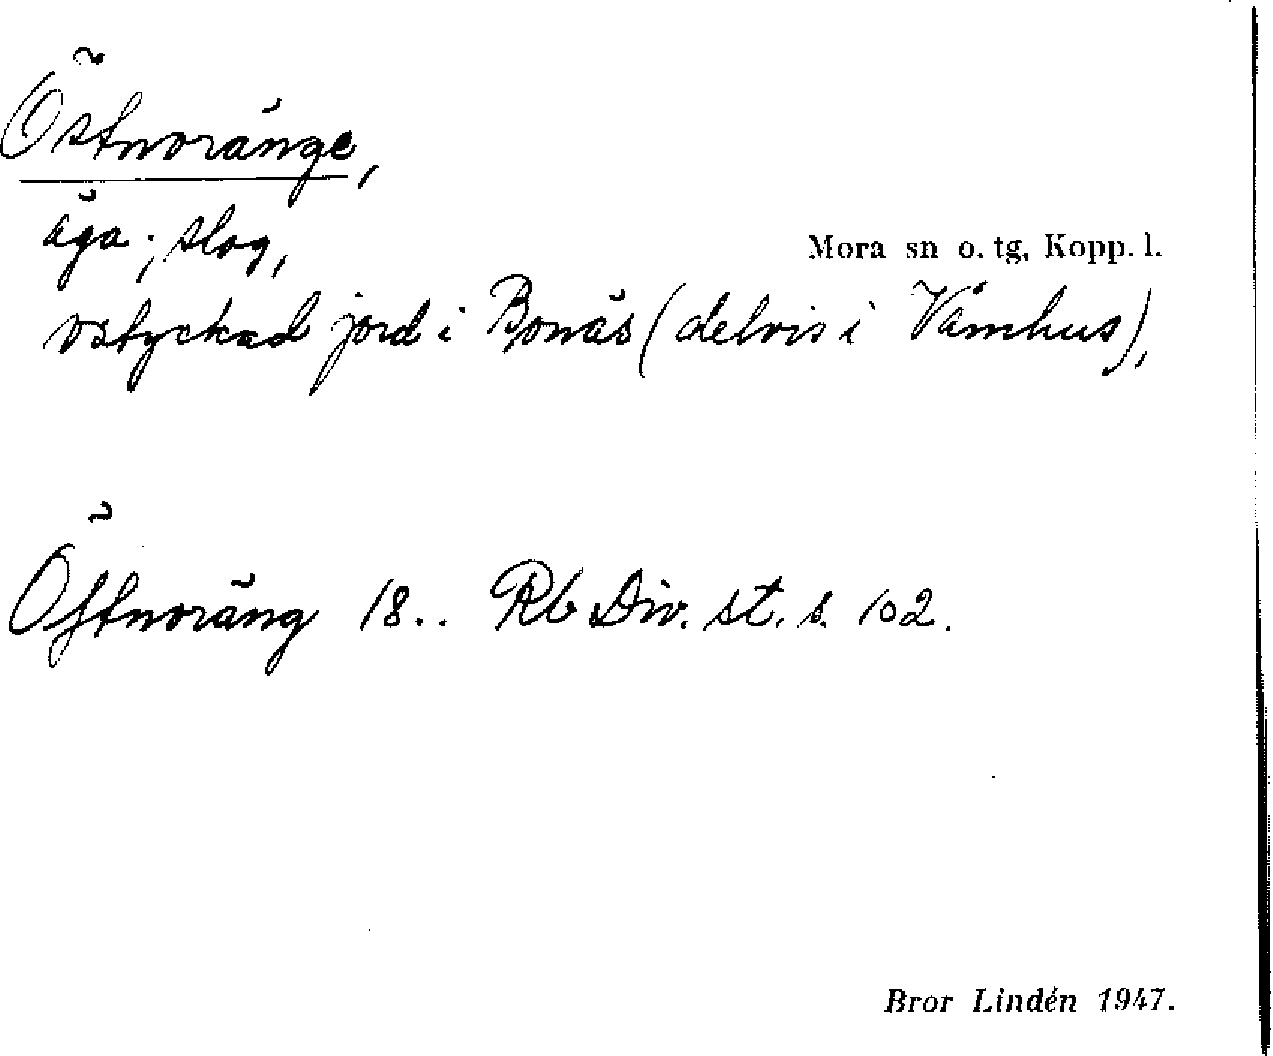 Östnoränge,
äga; slog,
Mora sn o. tg, Kopp. l.
ostyckad jord i Bonäs (delvis i Våmhus),
Östnoräng 18.. Rb Div. st. s. 102.
Bror Lindén 1947.